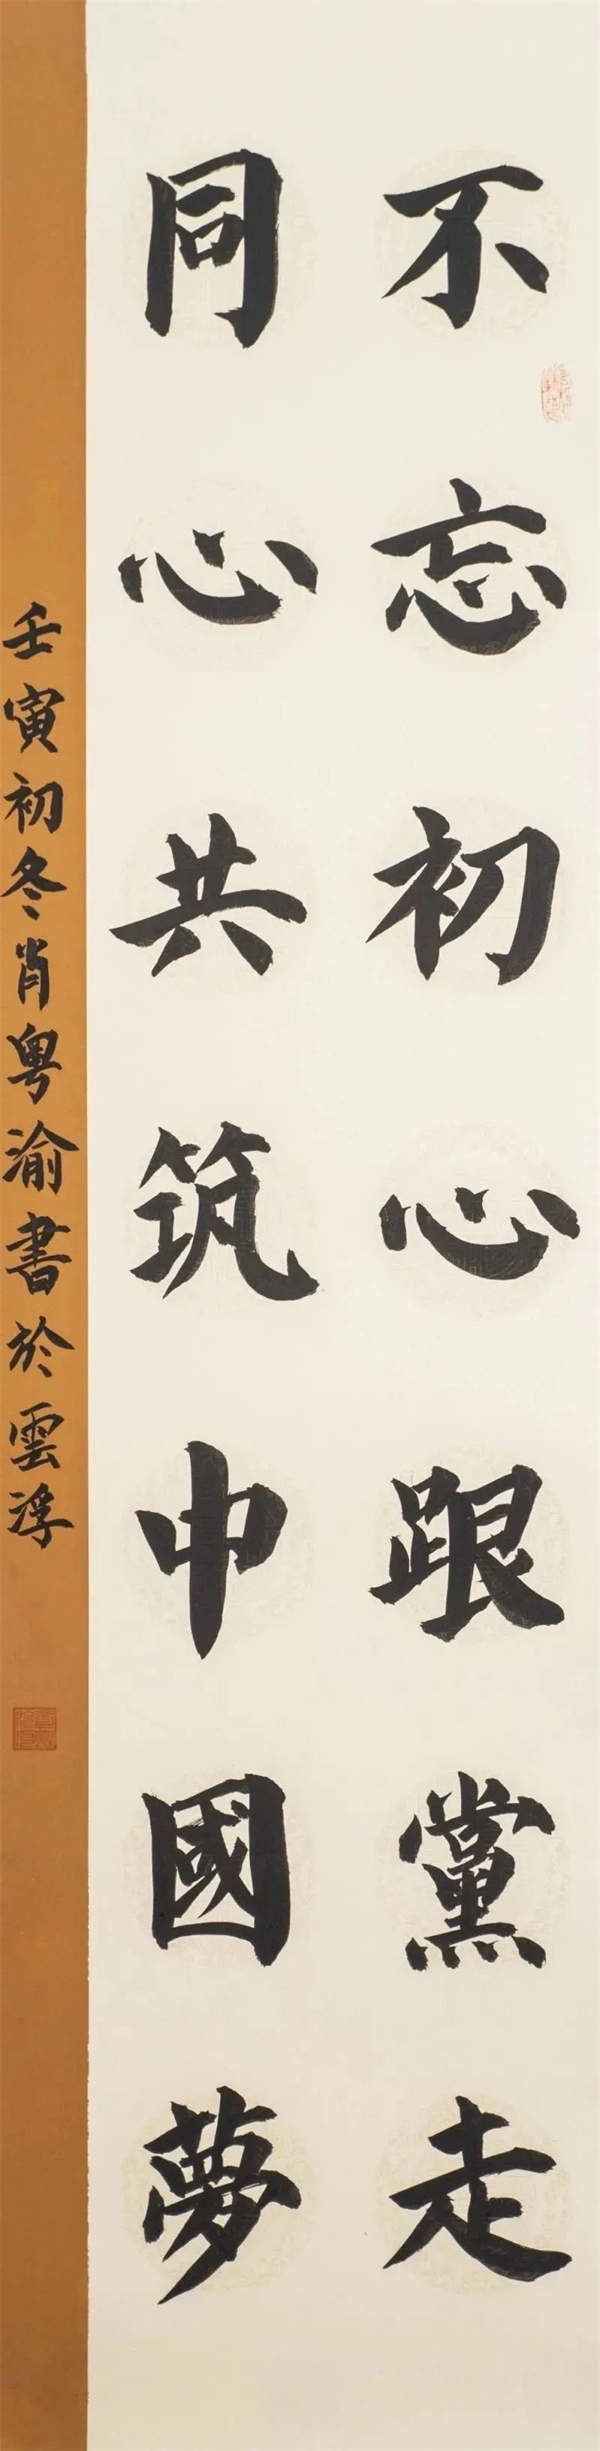 不忘初心跟黨走
同心共筑中國夢
壬寅初冬肖粵渝書於雲浮